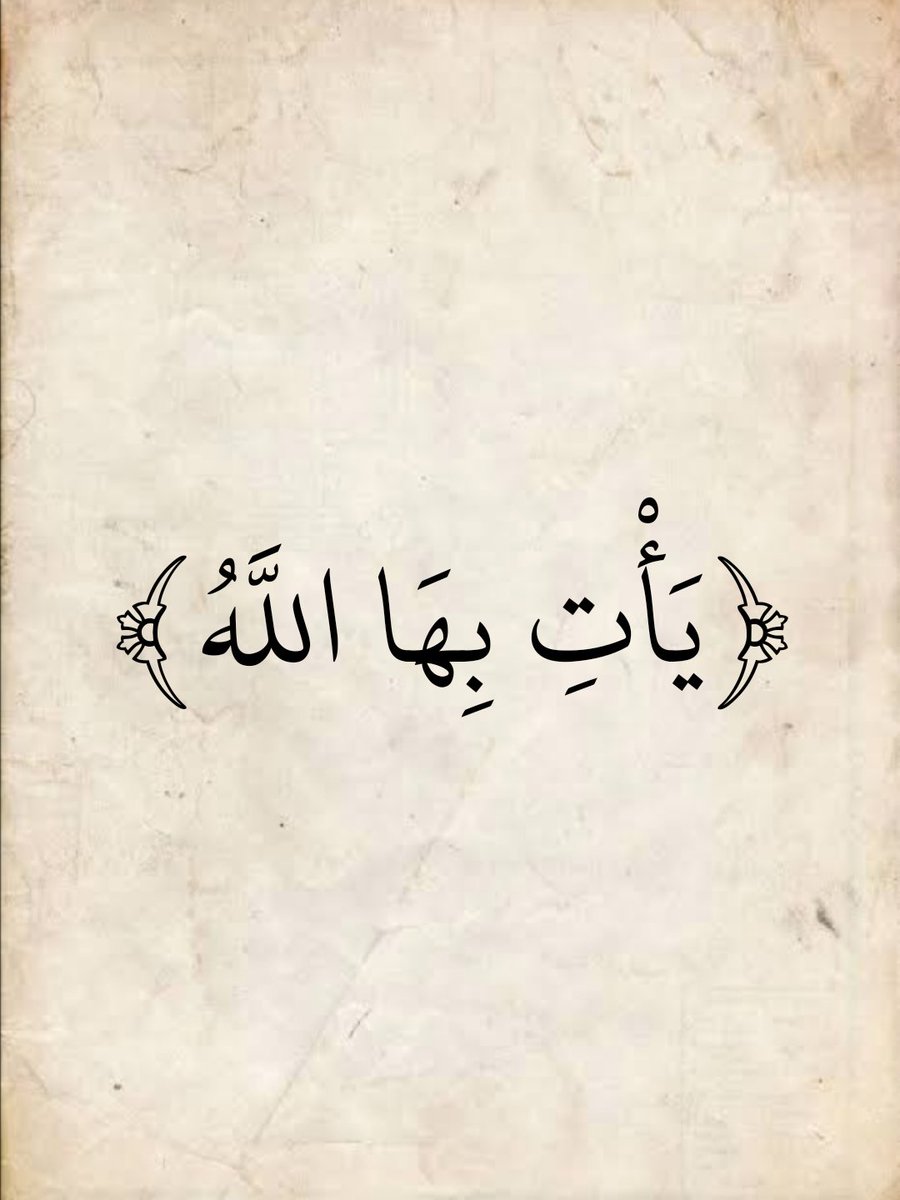 ﴿يَأْتِ بِهَا اللَّهُ﴾